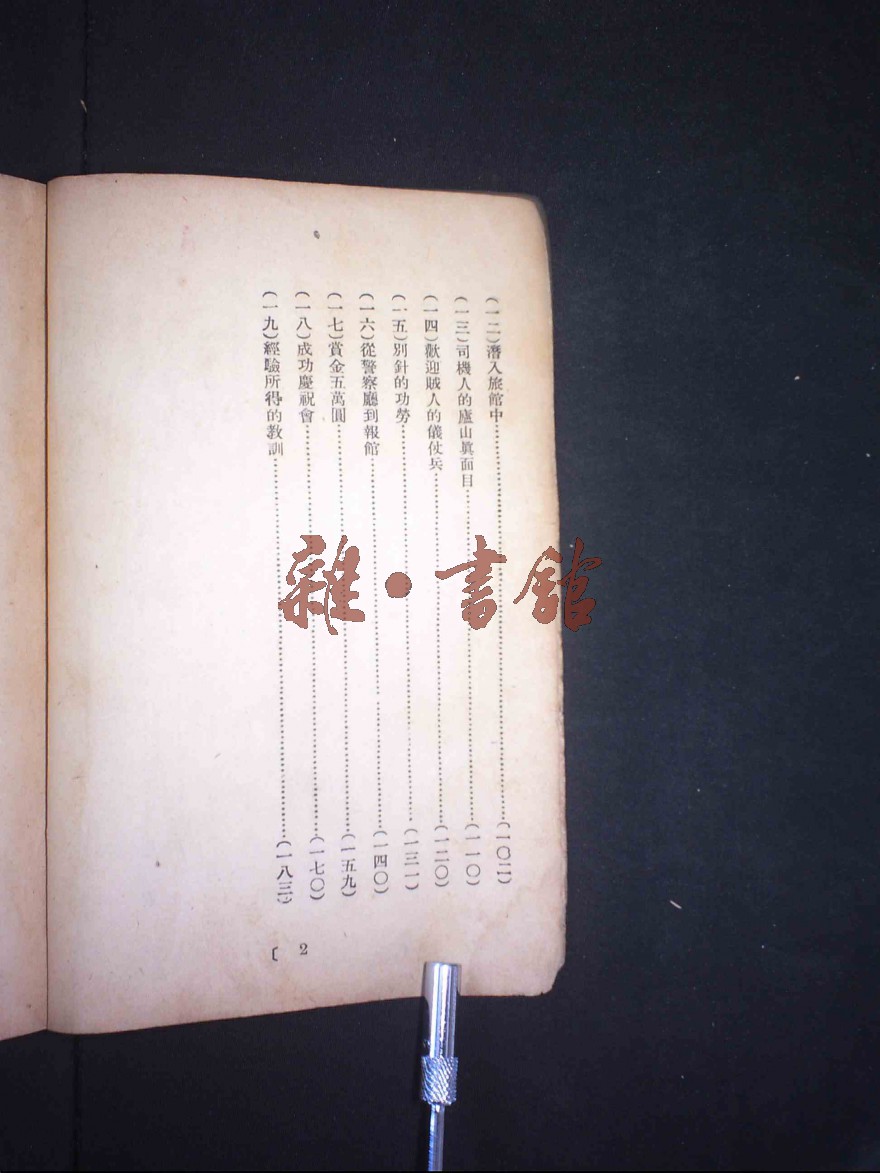 (一二)潛入旅館中……(一〇二)
(一三)司機人的廬山眞面目……(一一〇)
(一四)歡迎賊人的儀仗兵……(一二〇)
(一五)別針的功勞……(一三一)
(一六)從警察廳到報館……(一四〇)
(一七)賞金五萬圓……(一五九)
(一八)成功慶祝會……(一七〇)
(一九)經驗所得的敎訓……(一八三)
〔 2
雜·書館